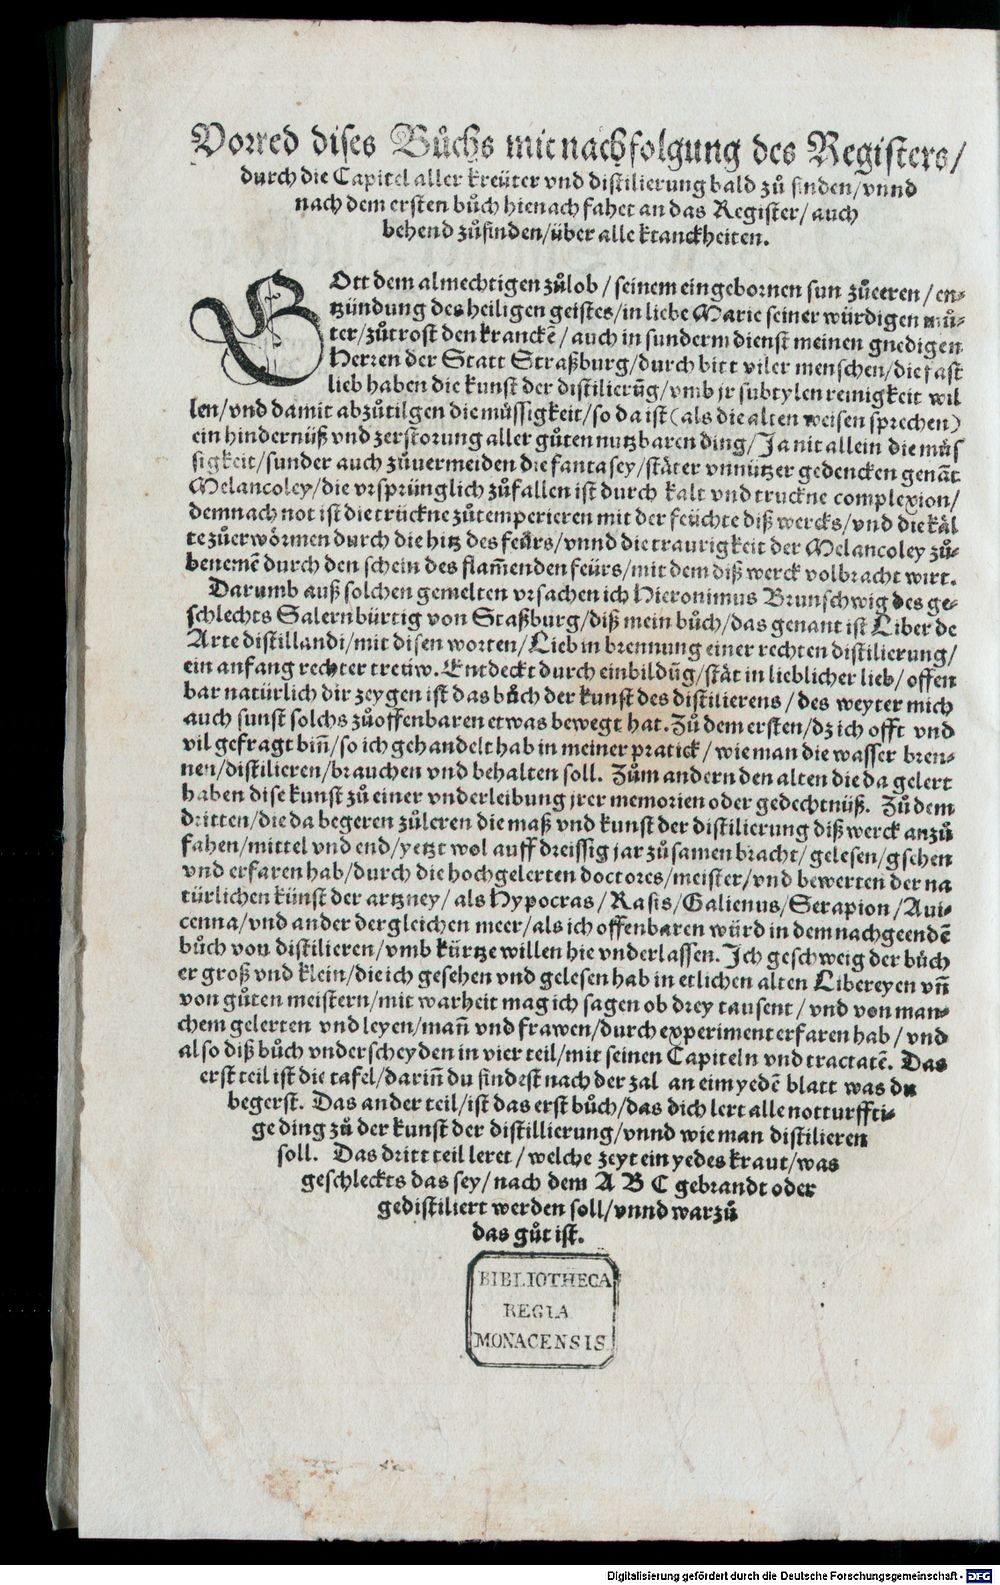 Vorred dises Bůchs mit nachfolgung des Registers/
durch die Capitel aller kreüter vnd distilierung bald zů finden/vnnd
nach dem ersten bůch hienach fahet an das Register/auch
behend zůfinden/über alle kranckheiten.
GOtt dem almechtigen zůlob/seinem eingebornen sun zůeeren/en-
tzündung des heiligen geistes/in liebe Marie seiner würdigen můt-
ter/zůtrost den kranckē/auch in sunderm dienst meinen gnedigen
Herren der Statt Straßburg/durch bitt viler menschen/die fast
lieb haben die kunst der distilierūg/vmb jr subtylen reinigkeit wil
len/vnd damit abzůtilgen die můssigkeit/so da ist (als die alten weisen sprechen)
ein hindernüß vnd zerstorung aller gůten nutzbaren ding/Ja nit allein die můs
sigkeit/sunder auch zůuermeiden die fantasey/stäter vnnützer gedencken genāt
Melancoley/die vrsprünglich zůfallen ist durch kalt vnd truckne complexion/
demnach not ist die trückne zůtemperieren mit der feüchte diß wercks/vnd die käl
te zůerwörmen durch die hitz des feürs/vnnd die traurigkeit der Melancoley zů-
benemē durch den schein des flam̄enden feürs/mit dem diß werck volbracht wirt.
Darumb auß solchen gemelten vrsachen ich Hieronimus Brunschwig des ge-
schlechts Salern bürtig von Staßburg/diß mein bůch/das genant ist Liber de
Arte distillandi/mit disen worten/Lieb in brennung einer rechten distilierung/
ein anfang rechter treüw. Entdeckt durch einbildūg/stät in lieblicher lieb/offen
bar natürlich dir zeygen ist das bůch der kunst des distilierens/des weyter mich
auch sunst solchs zůoffenbaren etwas bewegt hat. Zů dem ersten/dz ich offt vnd
vil gefragt bin̄/so ich gehandelt hab in meiner pratick/wie man die wasser bren-
nen/distilieren/brauchen vnd behalten soll. Zům andern den alten die da gelert
haben dise kunst zů einer vnderleibung jrer memorien oder gedechtnüß. Zů dem
dritten/die da begeren zůleren die maß vnd kunst der distilierung diß werck anzů
fahen/mittel vnd end/yetzt wol auff dreissig jar zůsamen bracht/gelesen/gsehen
vnd erfaren hab/durch die hochgelerten doctores/meister/vnd bewerten der na
türlichen künst der artzney/als Hypocras/Rasis/Galienus/Serapion/Aui-
cenna/vnd ander dergleichen meer/als ich offenbaren würd in dem nachgeendē
bůch von distilieren/vmb kürtze willen hie vnderlassen. Ich geschweig der bůch
er groß vnd klein/die ich gesehen vnd gelesen hab in etlichen alten Libereyen vn̄
von gůten meistern/mit warheit mag ich sagen ob drey tausent/vnd von man-
chem gelerten vnd leyen/man̄ vnd frawen/durch experiment erfaren hab/vnd
also diß bůch vnderscheyden in vier teil/mit seinen Capiteln vnd tractatē. Das
erst teil ist die tafel/darin̄ du findest nach der zal an eim yedē blatt was du
begerst. Das ander teil/ist das erst bůch/das dich lert alle notturffti-
ge ding zů der kunst der distillierung/vnnd wie man distilieren
soll. Das dritt teil leret/welche zeyt ein yedes kraut/was
geschlechts das sey/nach dem A B C gebrandt oder
gedistiliert werden soll/vnnd warzů
das gůt ist.
BIBLIOTHECA
REGIA
MONACENSIS
Digitalisierung gefördert durch die Deutsche Forschungsgemeinschaft - DFG